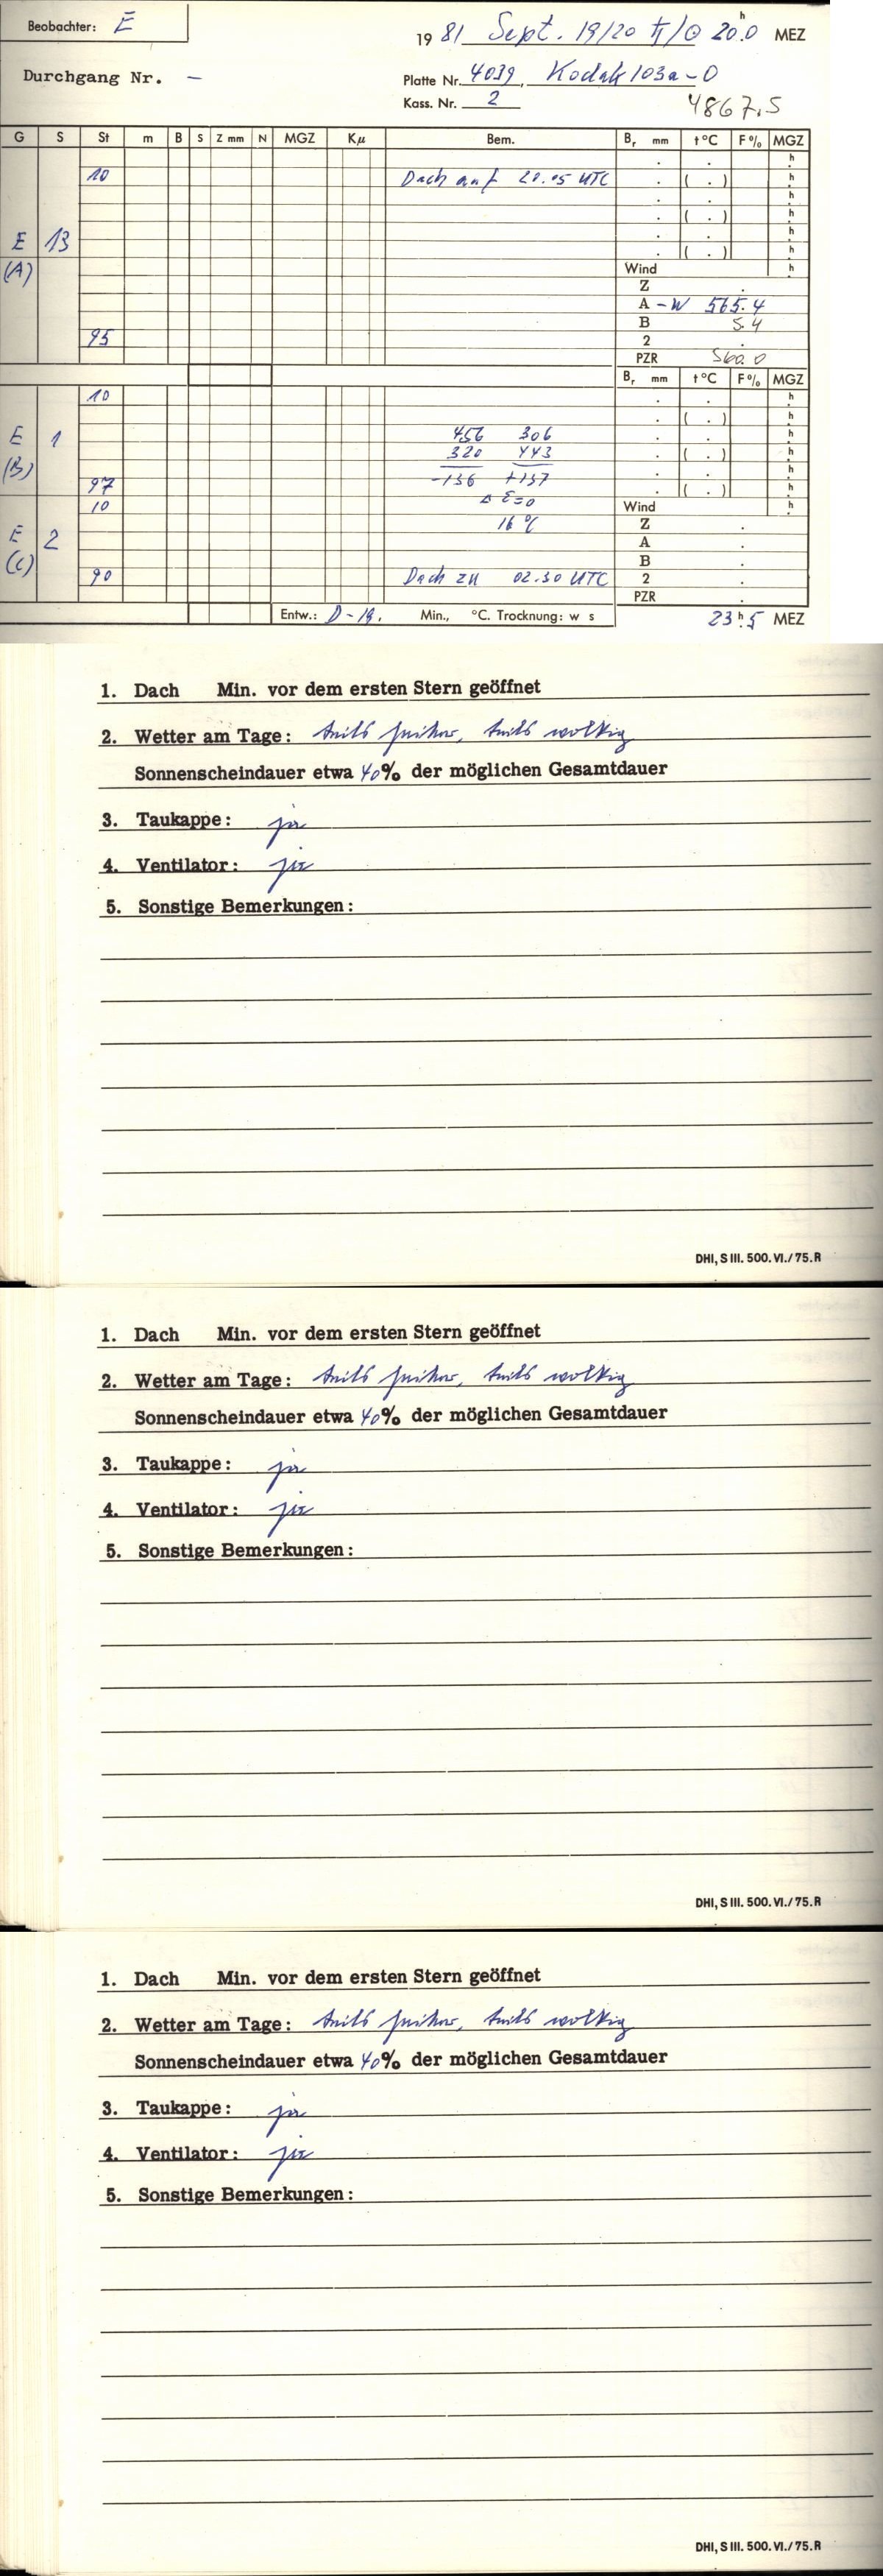 Beobachter: E
19 81 Sept. 19/20 ♄/☉ 20.0 h MEZ
Durchgang Nr. –
Platte Nr. 4039, Kodak 103a-O
Kass. Nr. 2
4867.5
G S St m B S Z mm N MGZ Kμ Bem. Br mm t°C F% MGZ
10 Dach auf 20.05 UTC
E 13
(A)
Wind
Z
A -W 565.4
B 5.4
95 2
PZR 560.0
Br mm t°C F% MGZ
10
E 1 456 306
(B) 320 443
97 -136 +137
10 Δ ε=0 Wind
E 2 16°C Z
(C) A
B
90 Dach zu 02.30 UTC 2
PZR
Entw.: D-19. Min., °C. Trocknung: w s 23 h 5 MEZ
1. Dach Min. vor dem ersten Stern geöffnet
2. Wetter am Tage: teils heiter, teils wolkig
Sonnenscheindauer etwa 40% der möglichen Gesamtdauer
3. Taukappe: ja
4. Ventilator: ja
5. Sonstige Bemerkungen:
DHI, S III. 500. VI./75. R
1. Dach Min. vor dem ersten Stern geöffnet
2. Wetter am Tage: teils heiter, teils wolkig
Sonnenscheindauer etwa 40% der möglichen Gesamtdauer
3. Taukappe: ja
4. Ventilator: ja
5. Sonstige Bemerkungen:
DHI, S III. 500. VI./75. R
1. Dach Min. vor dem ersten Stern geöffnet
2. Wetter am Tage: teils heiter, teils wolkig
Sonnenscheindauer etwa 40% der möglichen Gesamtdauer
3. Taukappe: ja
4. Ventilator: ja
5. Sonstige Bemerkungen:
DHI, S III. 500. VI./75. R